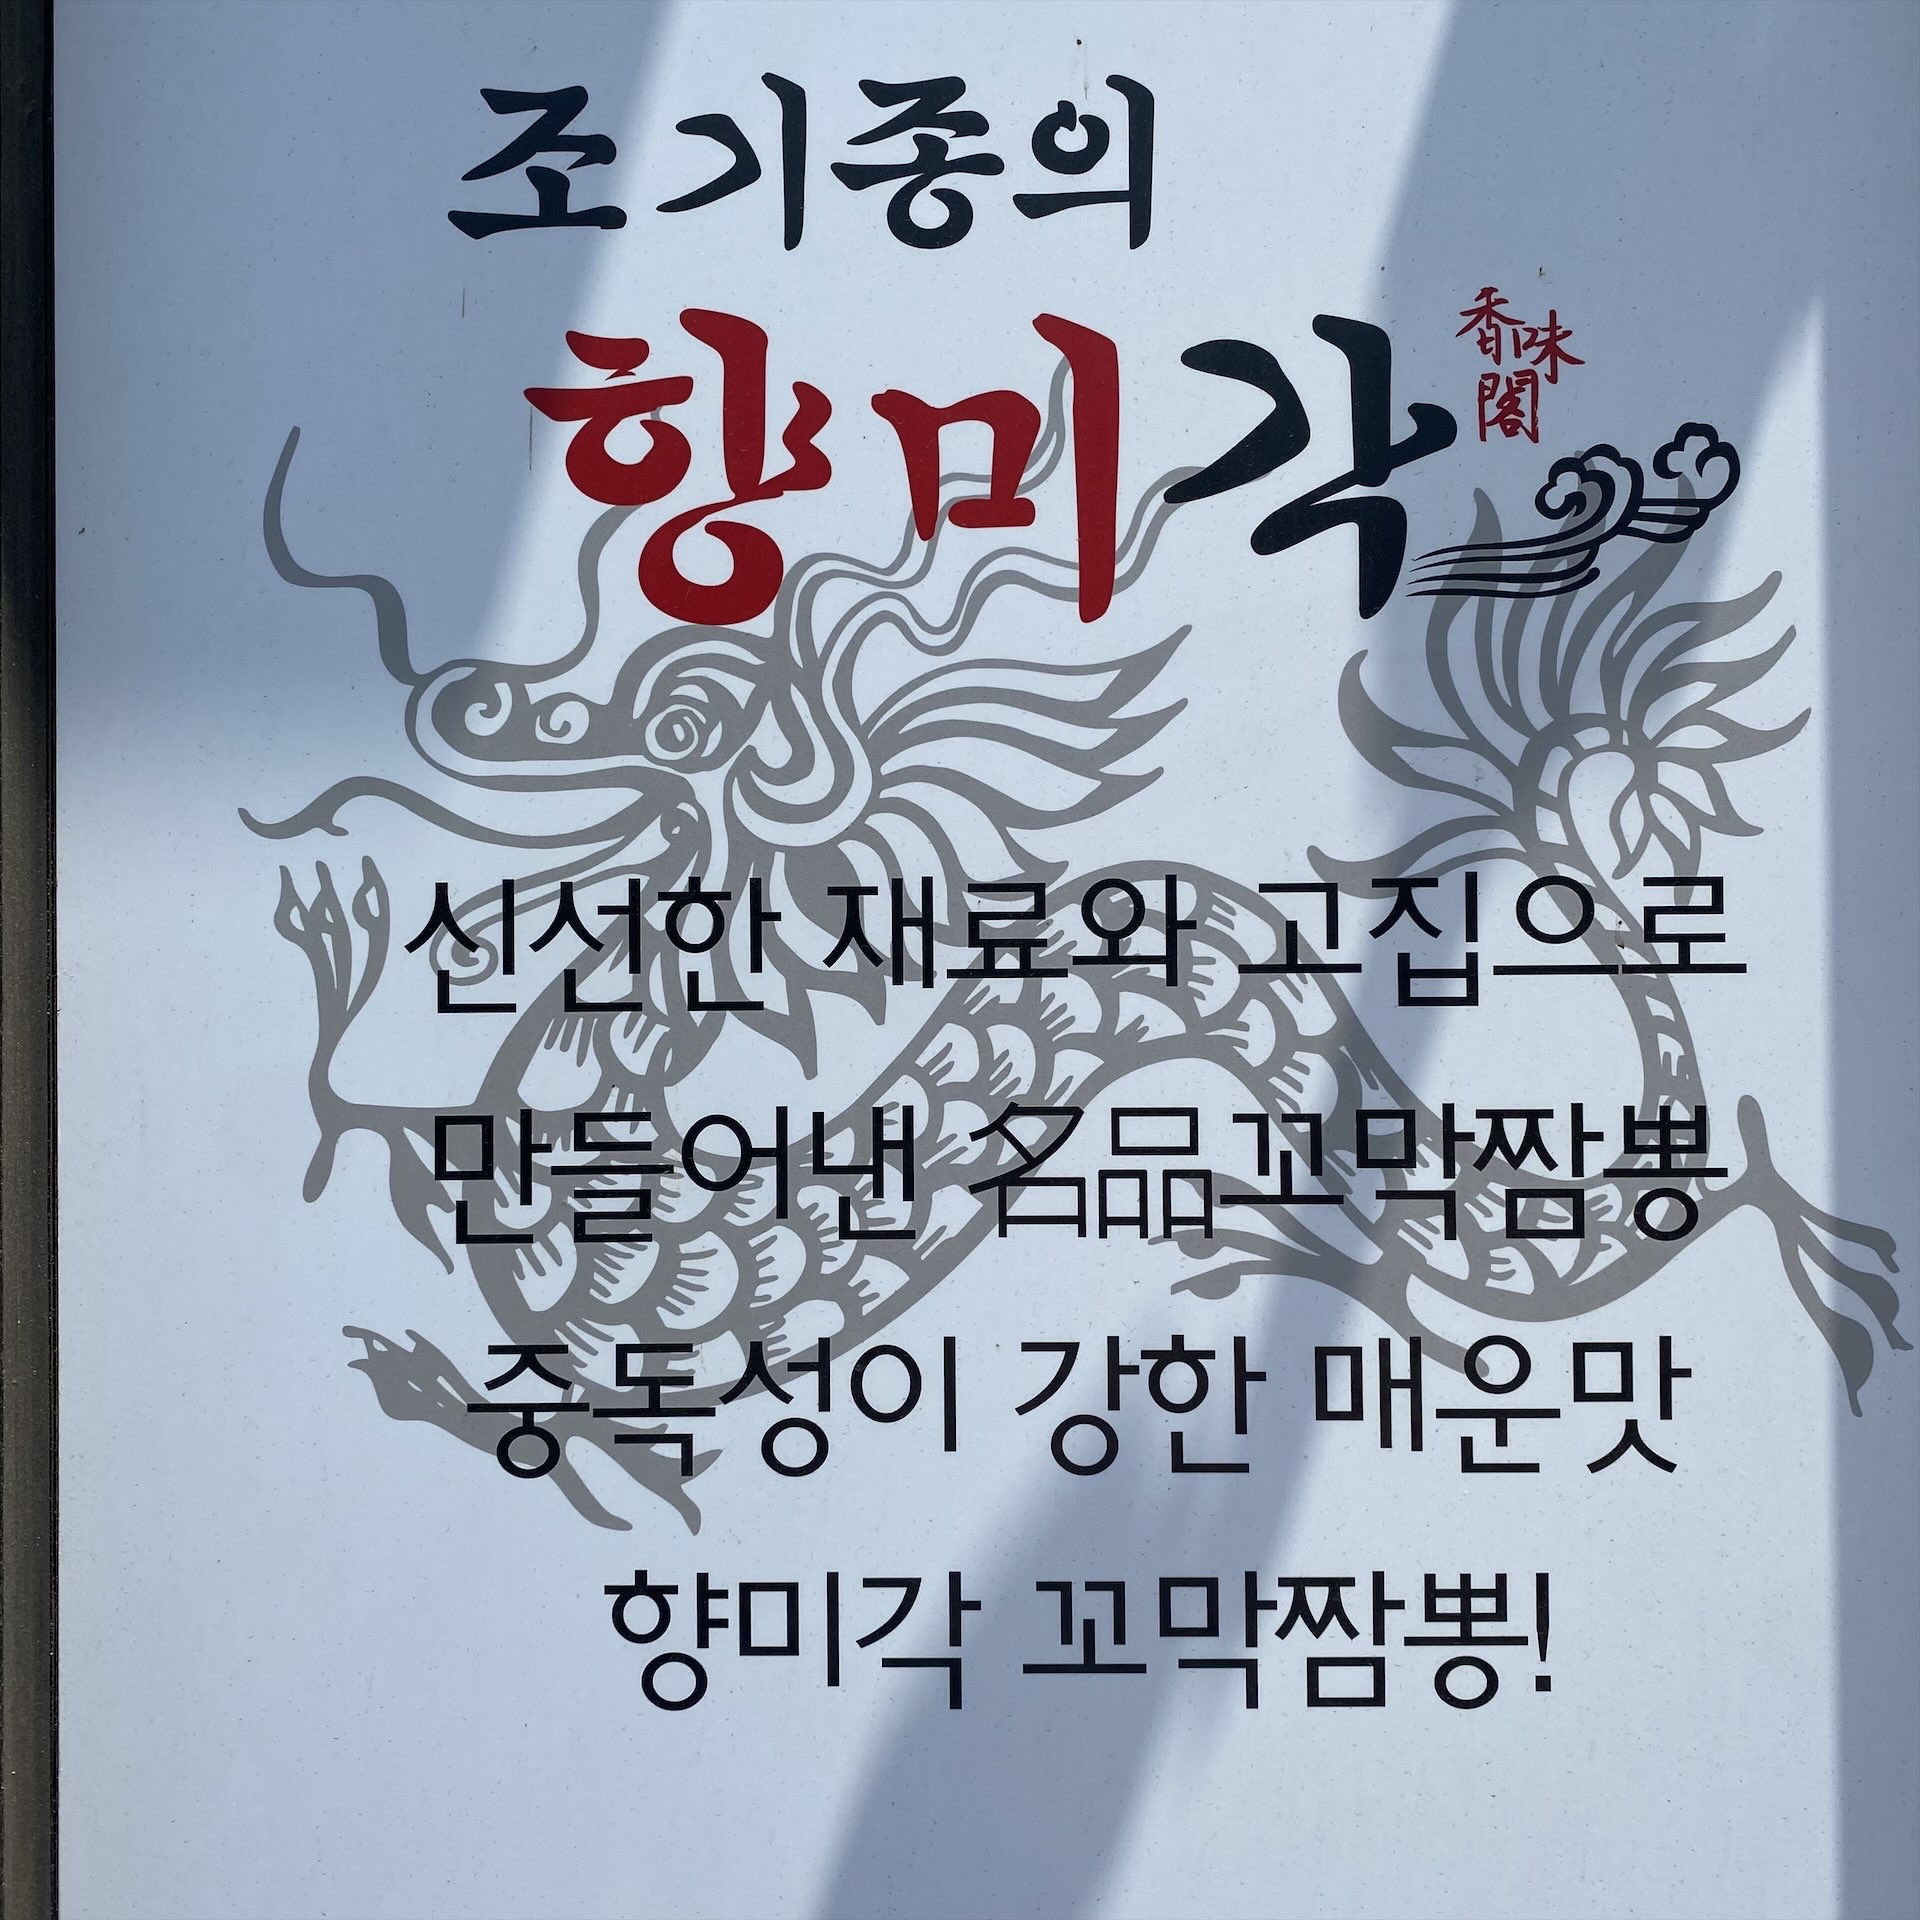 조기종의
향미각
香味
閣
신선한 재료와 고집으로
만들어낸 名品꼬막짬뽕
중독성이 강한 매운맛
향미각 꼬막짬뽕!